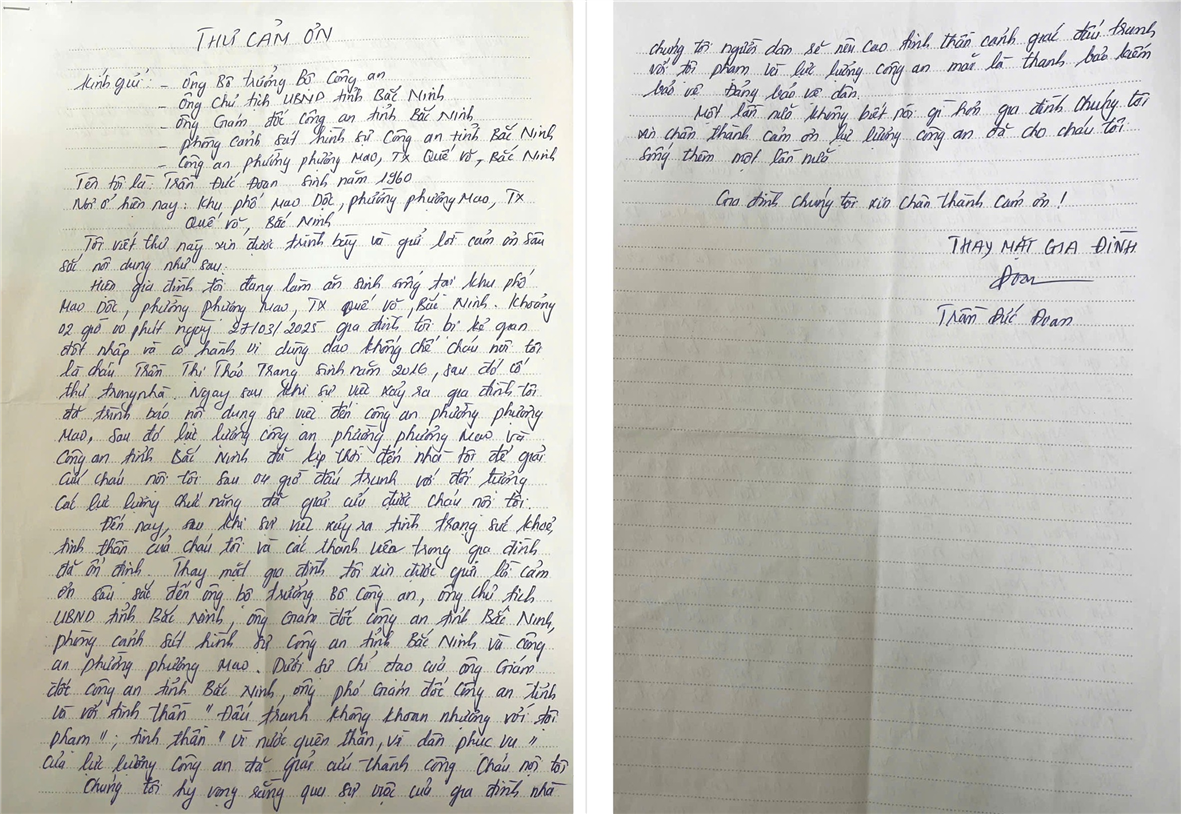 THƯ CẢM ƠN
Kính gửi: - Ông Bộ trưởng Bộ Công an
- Ông Chủ tịch UBND tỉnh Bắc Ninh
- Ông Giám đốc Công an tỉnh Bắc Ninh
- Phòng cảnh sát hình sự Công an tỉnh Bắc Ninh
- Công an phường phương Mao, TX Quế Võ, Bắc Ninh
Tên tôi là: Trần Đức Đoan sinh năm 1960
Nơi ở hiện nay: Khu phố Mao Dộc, phường phương Mao, TX
Quế Võ, Bắc Ninh
Tôi viết thư này xin được trình bày và gửi lời cảm ơn sâu
sắc nội dung như sau:
Hiện gia đình tôi đang làm ăn sinh sống tại khu phố
Mao Dộc, phường phương Mao, TX Quế Võ, Bắc Ninh. Khoảng
02 giờ 00 phút ngày 27/03/2025 gia đình tôi bị kẻ gian
đột nhập và có hành vi dùng dao khống chế cháu nội tôi
là cháu Trần Thị Thảo Trang sinh năm 2016, sau đó cố
thủ trong nhà. Ngay sau khi sự việc xảy ra gia đình tôi
đã trình báo nội dung sự việc đến công an phường phương
Mao, sau đó lực lượng công an phường phương Mao và
Công an tỉnh Bắc Ninh đã kịp thời đến nhà tôi để giải
cứu cháu nội tôi sau 04 giờ đấu tranh với đối tượng
các lực lượng chức năng đã giải cứu được cháu nội tôi.
Đến nay, sau khi sự việc xảy ra tình trạng sức khoẻ,
tinh thần của cháu tôi và các thành viên trong gia đình
đã ổn định. Thay mặt gia đình tôi xin được gửi lời cảm
ơn sâu sắc đến ông bộ trưởng Bộ Công an, ông chủ tịch
UBND tỉnh Bắc Ninh, ông Giám đốc Công an tỉnh Bắc Ninh,
phòng cảnh sát hình sự Công an tỉnh Bắc Ninh và công
an phường phương Mao. Dưới sự chỉ đạo của ông Giám
đốc công an tỉnh Bắc Ninh, ông phó Giám đốc Công an tỉnh
và với tinh thần " Đấu tranh không khoan nhượng với tội
phạm "; tinh thần " vì nước quên thân, vì dân phục vụ "
của lực lượng Công an đã giải cứu thành công cháu nội tôi
Chúng tôi hy vọng rằng qua sự việc của gia đình nhà
chúng tôi người dân sẽ nêu cao tinh thần cảnh giác đấu tranh
với tội phạm và lực lượng công an mãi là thanh bảo kiếm
bảo vệ Đảng bảo vệ dân.
Một lần nữa không biết nói gì hơn gia đình chúng tôi
xin chân thành cảm ơn lực lượng công an đã cho cháu tôi
sống thêm một lần nữa
Gia đình chúng tôi xin chân thành cảm ơn!
THAY MẶT GIA ĐÌNH
Đoan
Trần Đức Đoan